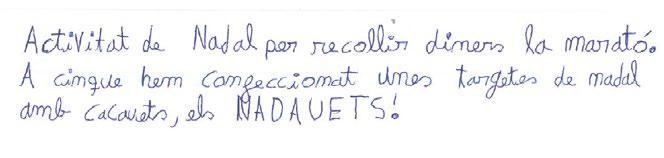 Activitat de Nadal per recollir diners la marató.
A cinquè hem confeccionat unes targetes de nadal
amb cacauets, els NADAUETS!